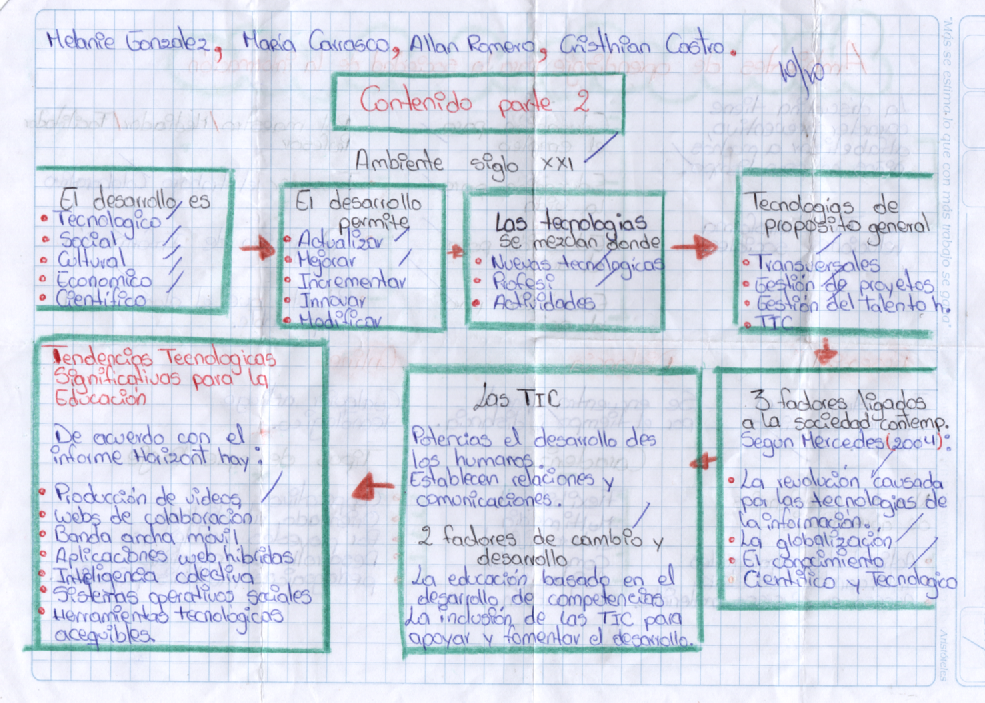 Melanie Gonzalez, María Carrasco, Allan Romero, Cristhian Castro.
10/10
Contenido parte 2
Ambiente siglo XXI
El desarrollo es
Tecnologico
Social
Cultural
Economico
Científico
El desarrollo
permite
Actualizar
Mejorar
Incrementar
Innovar
Modificar
Las tecnologias
se mezclan donde
Nuevas tecnologicas
Profesi
Actividades
Tecnologias de
proposito general
Transversales
Gestión de proyetos
Gestión del talento h.
TIC
3 factores ligados
a la sociedad contemp.
Segun Mercedes (2004):
La revolución causada
por las tecnologias de
la información.
La globalización
El conocimiento
Científico y Tecnologico
Las TIC
Potencias el desarrollo des
los humanos.
Establecen relaciones y
comunicaciones.
2 factores de cambio y
desarrollo
La educación basado en el
desarrollo de competencias
La inclusión de las TIC para
apoyar y fomentar el desarrollo.
Tendencias Tecnologicas
Significativas para la
Educación
De acuerdo con el
informe Horizont hay:
Producción de videos
webs de colaboración
Banda ancha móvil
Aplicaciones web hibridas
Inteligencia colectiva
Sistemas operativos sociales
Herramientas tecnologicas
acequibles.
Aristóteles